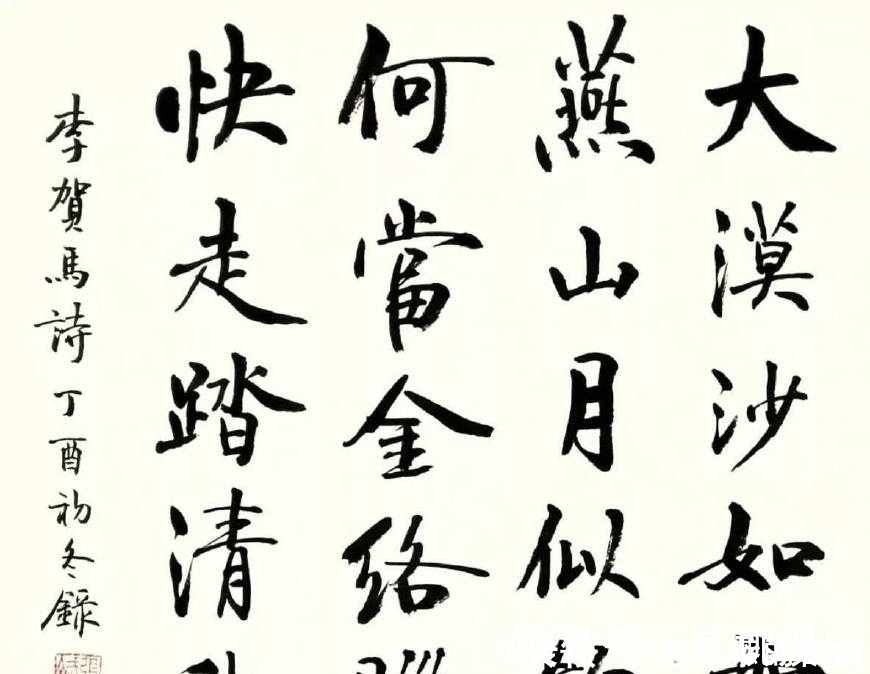 大漠沙如
燕山月似
何當金絡
快走踏清
李賀馬詩丁酉初冬錄